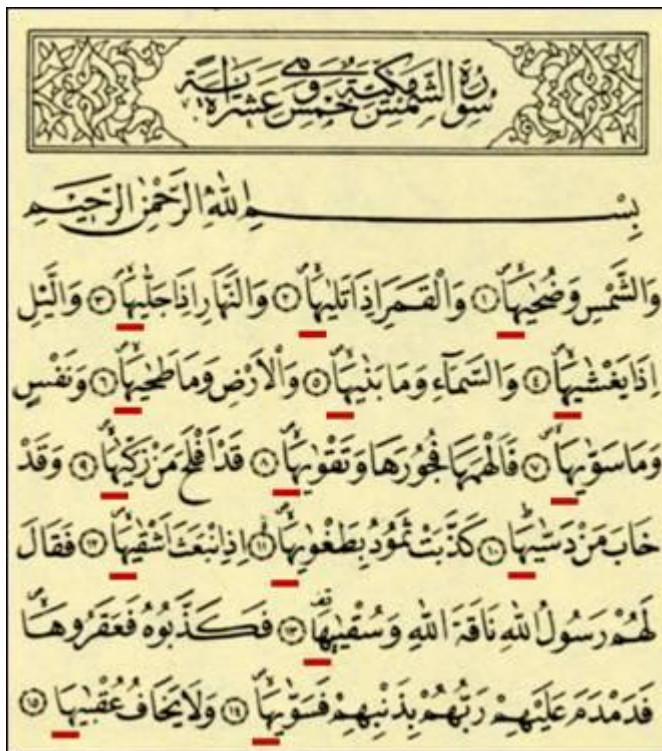 سُورَةُ الشَّمْسِ مَكِّيَّةٌ وَهِيَ خَمْسَ عَشْرَةَ اٰيَةً
بِسْمِ اللّٰهِ الرَّحْمٰنِ الرَّحٖيمِ
وَالشَّمْسِ وَضُحٰيهَاۙ ﴿١﴾ وَالْقَمَرِ اِذَا تَلٰيهَاۙ ﴿٢﴾ وَالنَّهَارِ اِذَا جَلّٰيهَاۙ ﴿٣﴾ وَالَّيْلِ
اِذَا يَغْشٰيهَاۙ ﴿٤﴾ وَالسَّمَٓاءِ وَمَا بَنٰيهَاۙ ﴿٥﴾ وَالْاَرْضِ وَمَا طَحٰيهَاۙ ﴿٦﴾ وَنَفْسٍ
وَمَا سَوّٰيهَاۙ ﴿٧﴾ فَاَلْهَمَهَا فُجُورَهَا وَتَقْوٰيهَاۙ ﴿٨﴾ قَدْ اَفْلَحَ مَنْ زَكّٰيهَاۙ ﴿٩﴾ وَقَدْ
خَابَ مَنْ دَسّٰيهَاۜ ﴿١٠﴾ كَذَّبَتْ ثَمُودُ بِطَغْوٰيهَاۙ ﴿١١﴾ اِذِ انْبَعَثَ اَشْقٰيهَاۙ ﴿١٢﴾ فَقَالَ
لَهُمْ رَسُولُ اللّٰهِ نَاقَةَ اللّٰهِ وَسُقْيٰيهَا ﴿١٣﴾ فَكَذَّبُوهُ فَعَقَرُوهَاۙ
فَدَمْدَمَ عَلَيْهِمْ رَبُّهُمْ بِذَنْبِهِمْ فَسَوّٰيهَاۙ ﴿١٤﴾ وَلَا يَخَافُ عُقْبٰيهَا ﴿١٥﴾